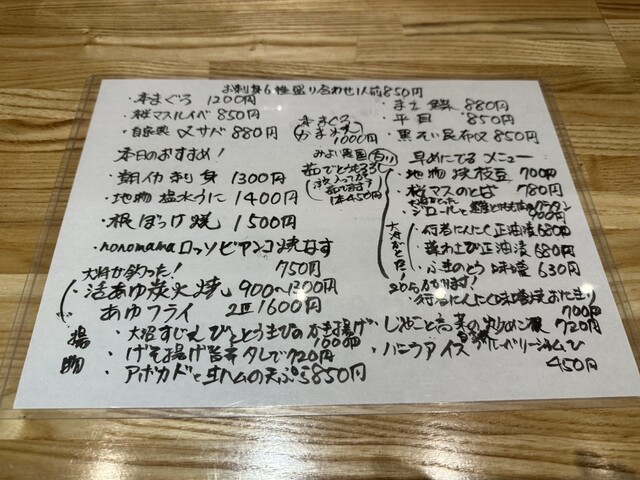 お刺身6種盛り合わせ1人前850円
・本まぐろ 1200円
・桜マスルイベ 850円
・自家製 〆サバ 880円
本まぐろ
かま焼
1000円
・まこ鰈 880円
・平目 850円
・黒そい昆布〆 850円
本日のおすすめ!
・朝イカ刺身 1300円
・地物 塩水うに 1400円
・根ぼっけ焼 1500円
・nonomamaロッソビアンコ焼なす
750円
みよい農園
茹でとうもろこし
注入ってから
茹でます!
1本450円
早めにでる メニュー
・地物 枝豆 700円
・桜マスのとば 780円
900円
大将がとった!
・行者にんにく正油漬 680円
・葉わさび正油漬 680円
・ふきのとう味噌 630円
・行者にんにく味噌焼おにぎり
700円
大将が釣った!
・活あゆ炭火焼 900〜1300円
あゆフライ 2匹1600円
揚物
・大沼すじえびととうきびのかき揚げ
1000円
・げそ揚げ旨辛タレで720円
・アボカドと生ハムの天ぷら850円
・じゃこと高菜の炒めご飯
720円
・バニラアイス 自家製ブルーベリージャム
450円